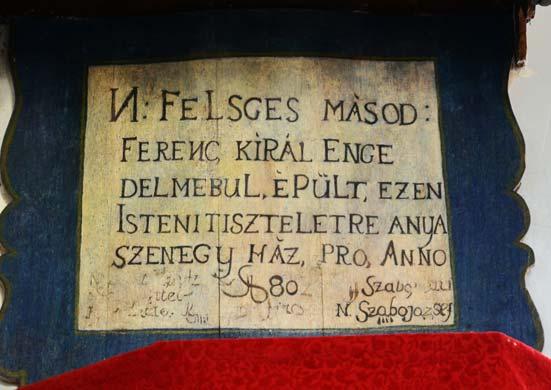 N: FELSGES MÀSOD:
FERENC, KÌRÁL ENGE
DELMEBUL, ÈPÜLT, EZEN
ISTENITISZTELETRE ANYA
SZENEGY HÁZ, PRO, ANNO
80
N. Szabojozsef